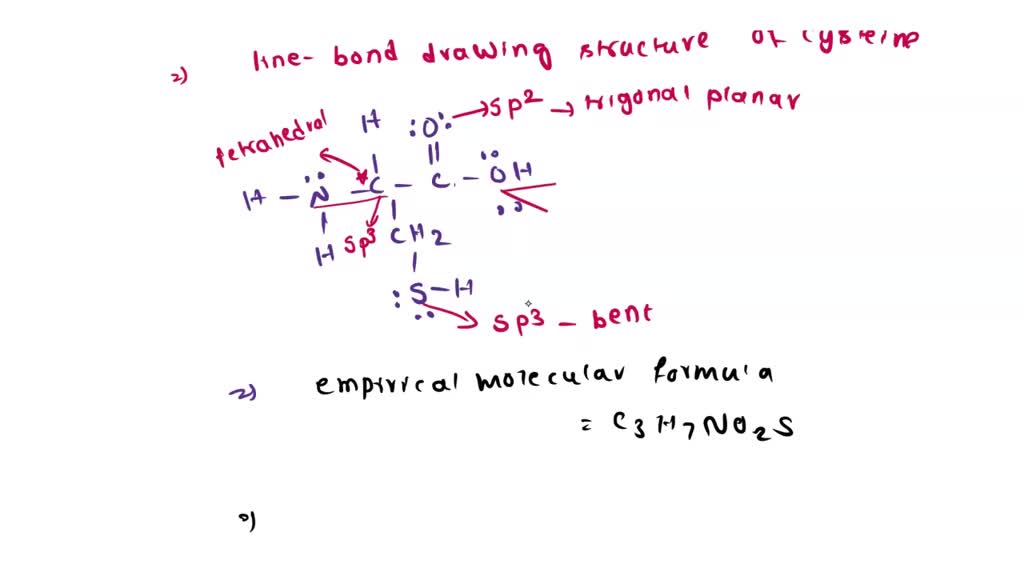 2) line-bond drawing structure of cysteine
tetrahedral H :O: → sp2 → trigonal planar
H - N - C - C - OH
H sp3 CH2
:S-H
sp3 - bent
2) empirical molecular formula
= C3H7NO2S